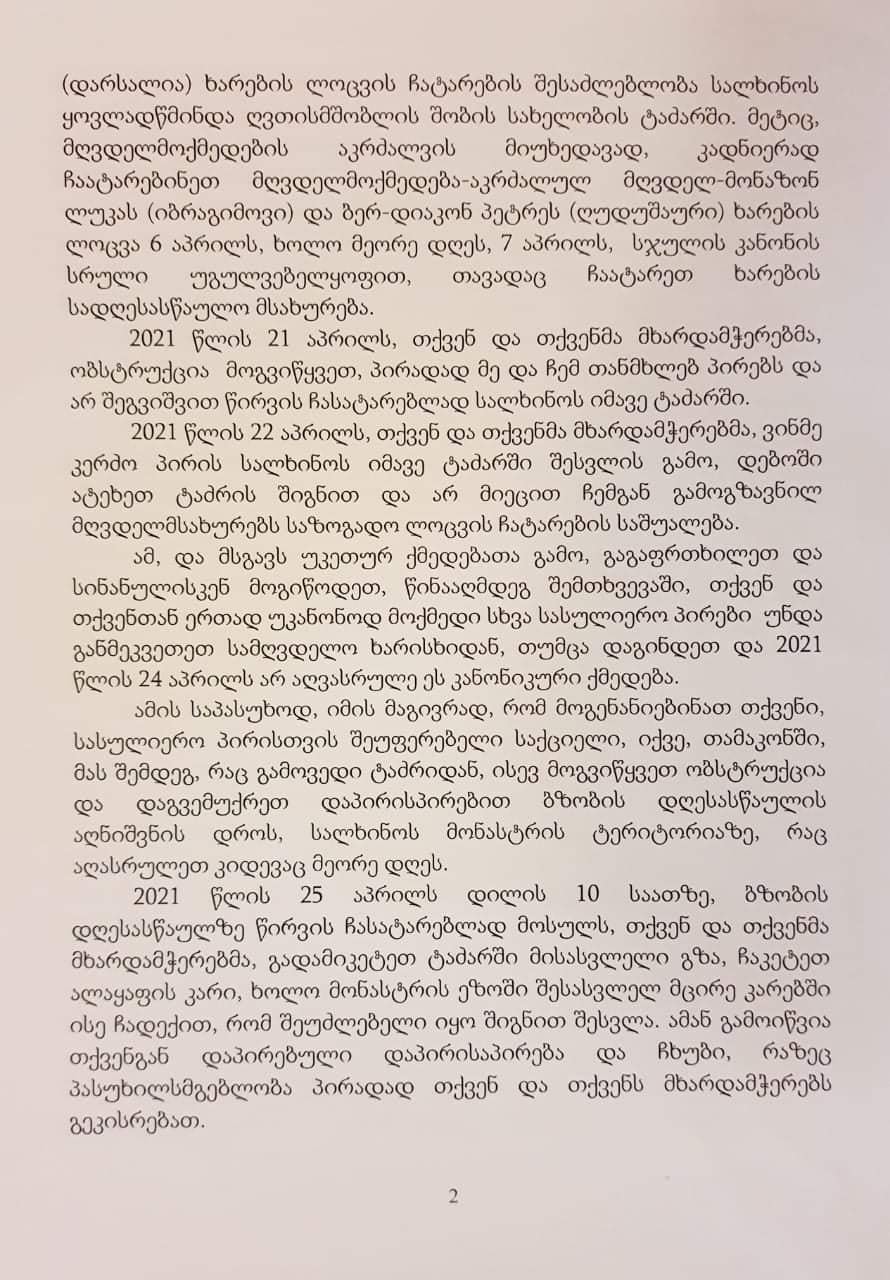 (დარსალია) ხარების ლოცვის ჩატარების შესაძლებლობა სალხინოს
ყოვლადწმინდა ღვთისმშობლის შობის სახელობის ტაძარში. მეტიც,
მღვდელმოქმედების აკრძალვის მიუხედავად, კადნიერად
ჩაატარებინეთ მღვდელმოქმედება-აკრძალულ მღვდელ-მონაზონ
ლუკას (იბრაგიმოვი) და ბერ-დიაკონ პეტრეს (ღუდუშაური) ხარების
ლოცვა 6 აპრილს, ხოლო მეორე დღეს, 7 აპრილს, სჯულის კანონის
სრული უგულვებელყოფით, თავადაც ჩაატარეთ ხარების
სადღესასწაულო მსახურება.
2021 წლის 21 აპრილს, თქვენ და თქვენმა მხარდამჭერებმა,
ობსტრუქცია მოგვიწყვეთ, პირადად მე და ჩემ თანმხლებ პირებს და
არ შეგვიშვით წირვის ჩასატარებლად სალხინოს იმავე ტაძარში.
2021 წლის 22 აპრილს, თქვენ და თქვენმა მხარდამჭერებმა, ვინმე
კერძო პირის სალხინოს იმავე ტაძარში შესვლის გამო, დებოში
ატეხეთ ტაძრის შიგნით და არ მიეცით ჩემგან გამოგზავნილ
მღვდელმსახურებს საზოგადო ლოცვის ჩატარების საშუალება.
ამ, და მსგავს უკეთურ ქმედებათა გამო, გაგაფრთხილეთ და
სინანულისკენ მოგიწოდეთ, წინააღმდეგ შემთხვევაში, თქვენ და
თქვენთან ერთად უკანონოდ მოქმედი სხვა სასულიერო პირები უნდა
განმეკვეთეთ სამღვდელო ხარისხიდან, თუმცა დაგინდეთ და 2021
წლის 24 აპრილს არ აღვასრულე ეს კანონიკური ქმედება.
ამის საპასუხოდ, იმის მაგივრად, რომ მოგენანიებინათ თქვენი,
სასულიერო პირისთვის შეუფერებელი საქციელი, იქვე, თამაკონში,
მას შემდეგ, რაც გამოვედი ტაძრიდან, ისევ მოგვიწყვეთ ობსტრუქცია
და დაგვემუქრეთ დაპირისპირებით ბზობის დღესასწაულის
აღნიშვნის დროს, სალხინოს მონასტრის ტერიტორიაზე, რაც
აღასრულეთ კიდევაც მეორე დღეს.
2021 წლის 25 აპრილს დილის 10 საათზე, ბზობის
დღესასწაულზე წირვის ჩასატარებლად მოსულს, თქვენ და თქვენმა
მხარდამჭერებმა, გადამიკეტეთ ტაძარში მისასვლელი გზა, ჩაკეტეთ
ალაყაფის კარი, ხოლო მონასტრის ეზოში შესასვლელ მცირე კარებში
ისე ჩადექით, რომ შეუძლებელი იყო შიგნით შესვლა. ამან გამოიწვია
თქვენგან დაპირებული დაპირისაპირება და ჩხუბი, რაზეც
პასუხილსმგებლობა პირადად თქვენ და თქვენს მხარდამჭერებს
გეკისრებათ.
2